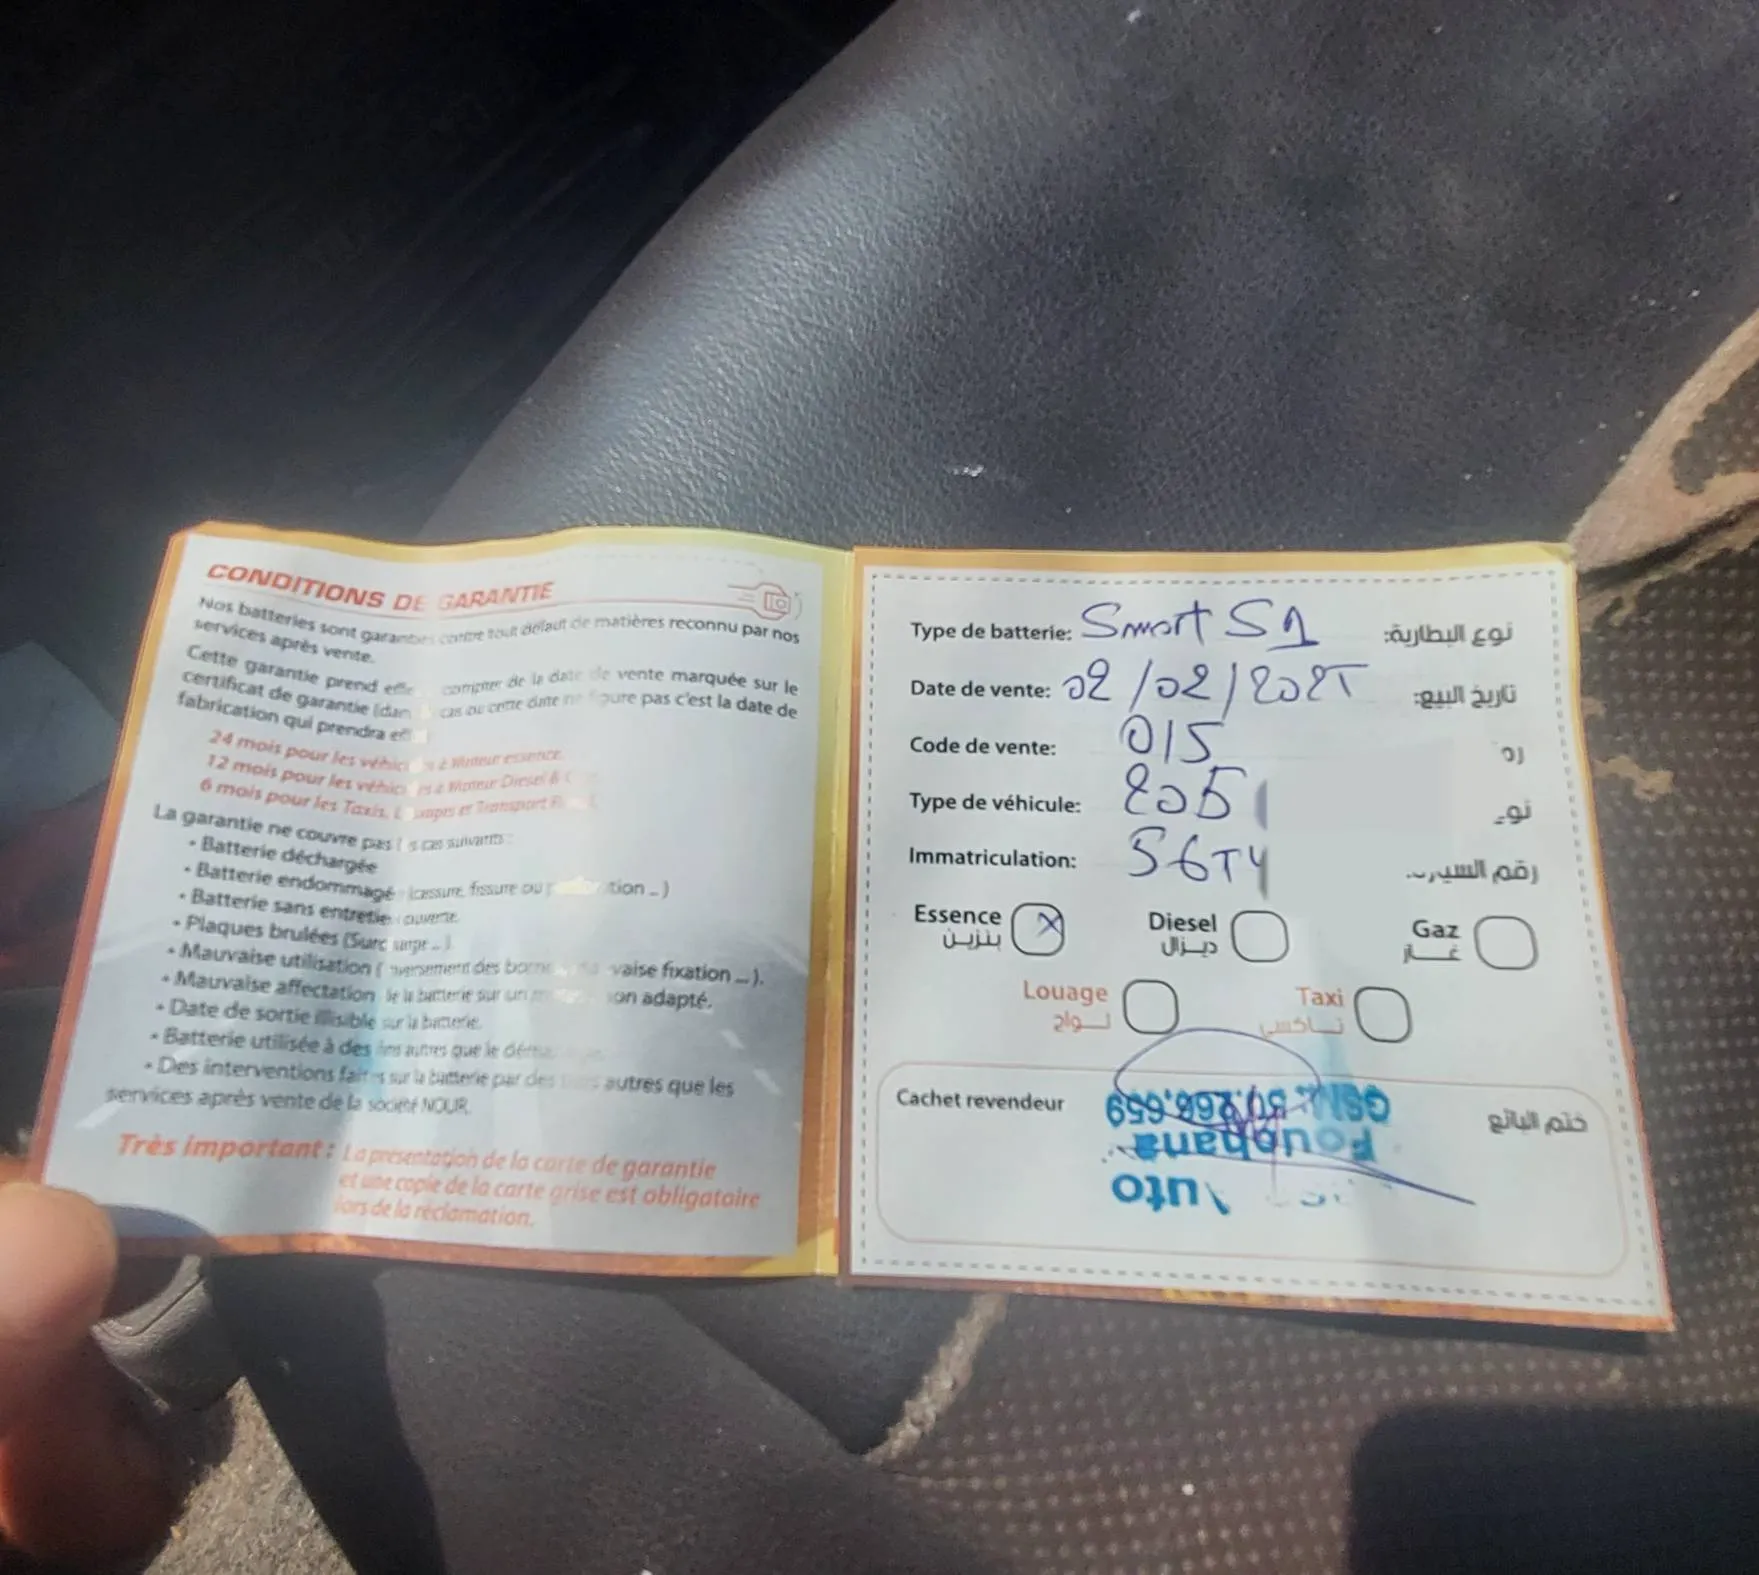 CONDITIONS DE GARANTIE
Nos batteries sont garanties contre tout défaut de matières reconnu par nos
services après vente.
Cette garantie prend compter de la date de vente marquée sur le
certificat de garantie cas ou cette date ne figure pas c'est la date de
fabrication qui prendra
24 mois pour les à Moteur essence.
12 mois pour les à Moteur Diesel &
6 mois pour les Taxis, et Transport
La garantie ne couvre pas cas suivants :
• Batterie déchargée
• Batterie endommagé (cassure, fissure ou
• Batterie sans entretien ouverte.
• Plaques brulées
• Mauvaise utilisation ( des fixation ... ).
• Mauvaise affectation de la batterie sur un adapté.
• Date de sortie illisible sur la batterie.
• Batterie utilisée à des fins autres que le
• Des interventions faites sur la batterie par des autres que les
services après vente de la société NOUR.
Très important : La présentation de la carte de garantie
et une copie de la carte grise est obligatoire
lors de la réclamation.
Type de batterie: Smart S1 نوع البطارية:
Date de vente: 02/02/2025 تاريخ البيع:
Code de vente: 015
Type de véhicule: 205
Immatriculation: رقم
Essence بنزين X
Diesel ديزال
Gaz غاز
Louage لواج
Taxi تاكسي
Cachet revendeur ختم البائع
Auto
Fouchana
GSM: 50.266.659